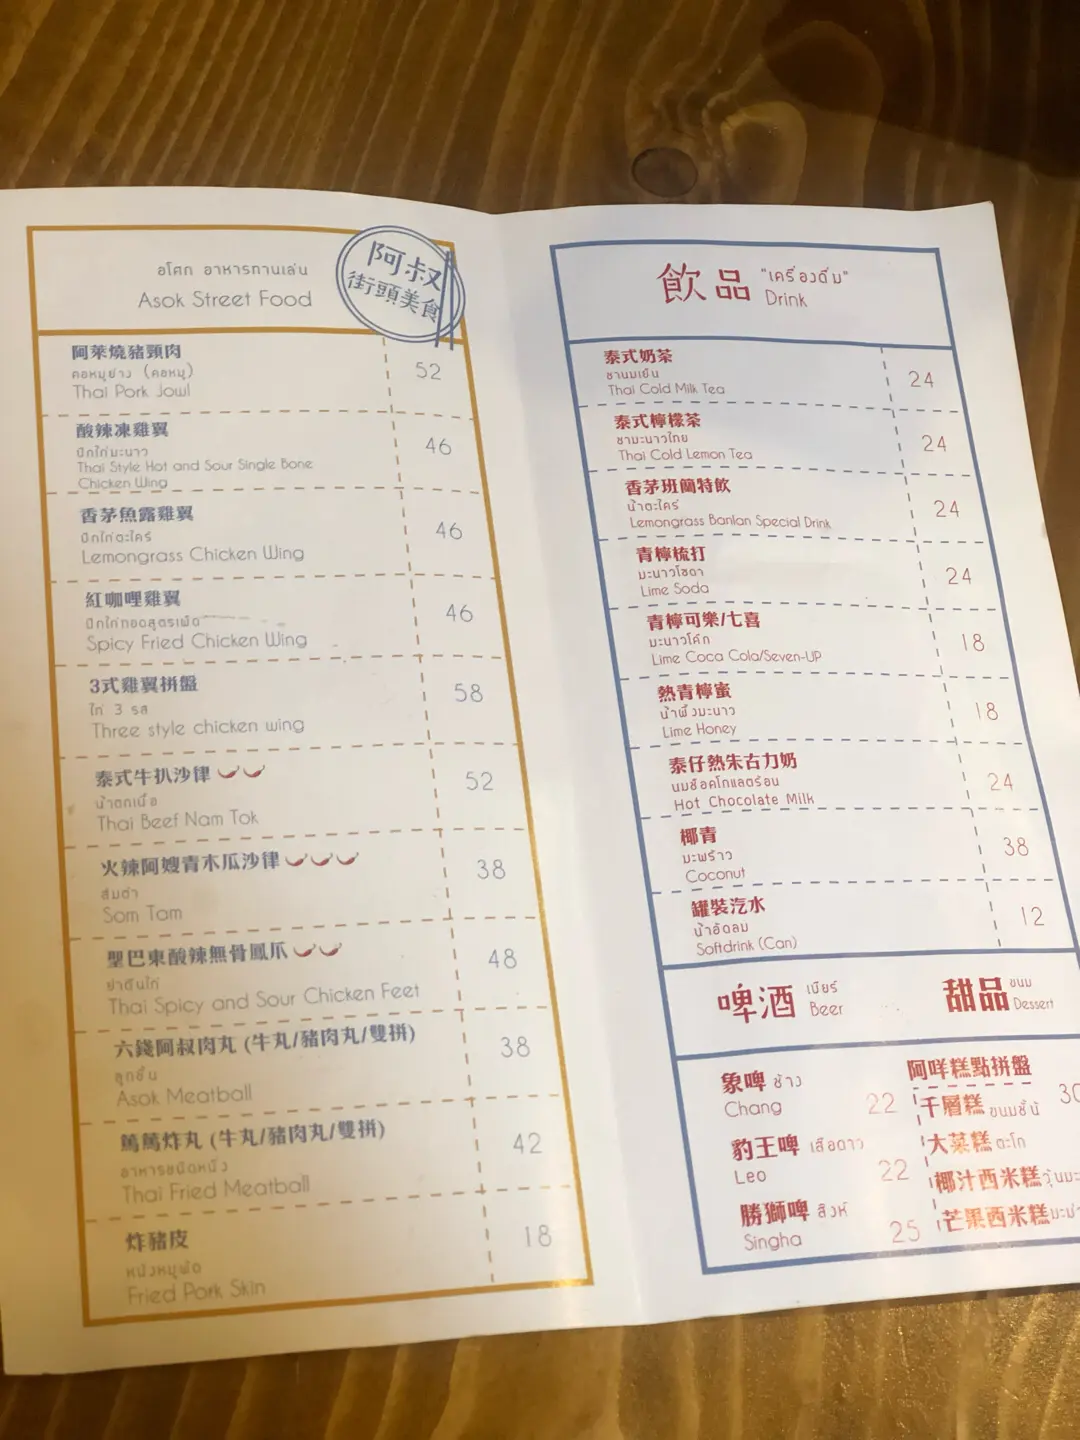 อโศก อาหารทานเล่น
Asok Street Food
阿叔
街頭美食
阿萊燒豬頸肉
คอหมูย่าง (คอหมู)
Thai Pork Jowl
52
酸辣凍雞翼
ปีกไก่มะนาว
Thai Style Hot and Sour Single Bone
Chicken Wing
46
香茅魚露雞翼
ปีกไก่ตะไคร้
Lemongrass Chicken Wing
46
紅咖哩雞翼
ปีกไก่ทอดสูตรเผ็ด
Spicy Fried Chicken Wing
46
3式雞翼拼盤
ไก่ 3 รส
Three style chicken wing
58
泰式牛扒沙律
น้ำตกเนื้อ
Thai Beef Nam Tok
52
火辣阿嫂青木瓜沙律
ส้มตำ
Som Tam
38
聖巴東酸辣無骨鳳爪
ยำตีนไก่
Thai Spicy and Sour Chicken Feet
48
六錢阿叔肉丸 (牛丸/豬肉丸/雙拼)
ลูกชิ้น
Asok Meatball
38
篤篤炸丸 (牛丸/豬肉丸/雙拼)
อาหารชนิดหนึ่ง
Thai Fried Meatball
42
炸豬皮
หนังหมูผัด
Fried Pork Skin
18
飲品 "เครื่องดื่ม"
Drink
泰式奶茶
ชานมเย็น
Thai Cold Milk Tea
24
泰式檸檬茶
ชามะนาวไทย
Thai Cold Lemon Tea
24
香茅班蘭特飲
น้ำตะไคร้
Lemongrass Banlan Special Drink
24
青檸梳打
มะนาวโซดา
Lime Soda
24
青檸可樂/七喜
มะนาวโค้ก
Lime Coca Cola/Seven-UP
18
熱青檸蜜
น้ำผึ้งมะนาว
Lime Honey
18
泰仔熱朱古力奶
นมช็อคโกแลตร้อน
Hot Chocolate Milk
24
椰青
มะพร้าว
Coconut
38
罐裝汽水
น้ำอัดลม
Softdrink (Can)
12
啤酒 เบียร์
Beer
甜品 ขนม
Dessert
象啤 ช้าง
Chang
22
豹王啤 เสือดาว
Leo
22
勝獅啤 สิงห์
Singha
25
阿咩糕點拼盤
30
千層糕 ขนมชั้น
大菜糕 ตะโก้
椰汁西米糕
芒果西米糕